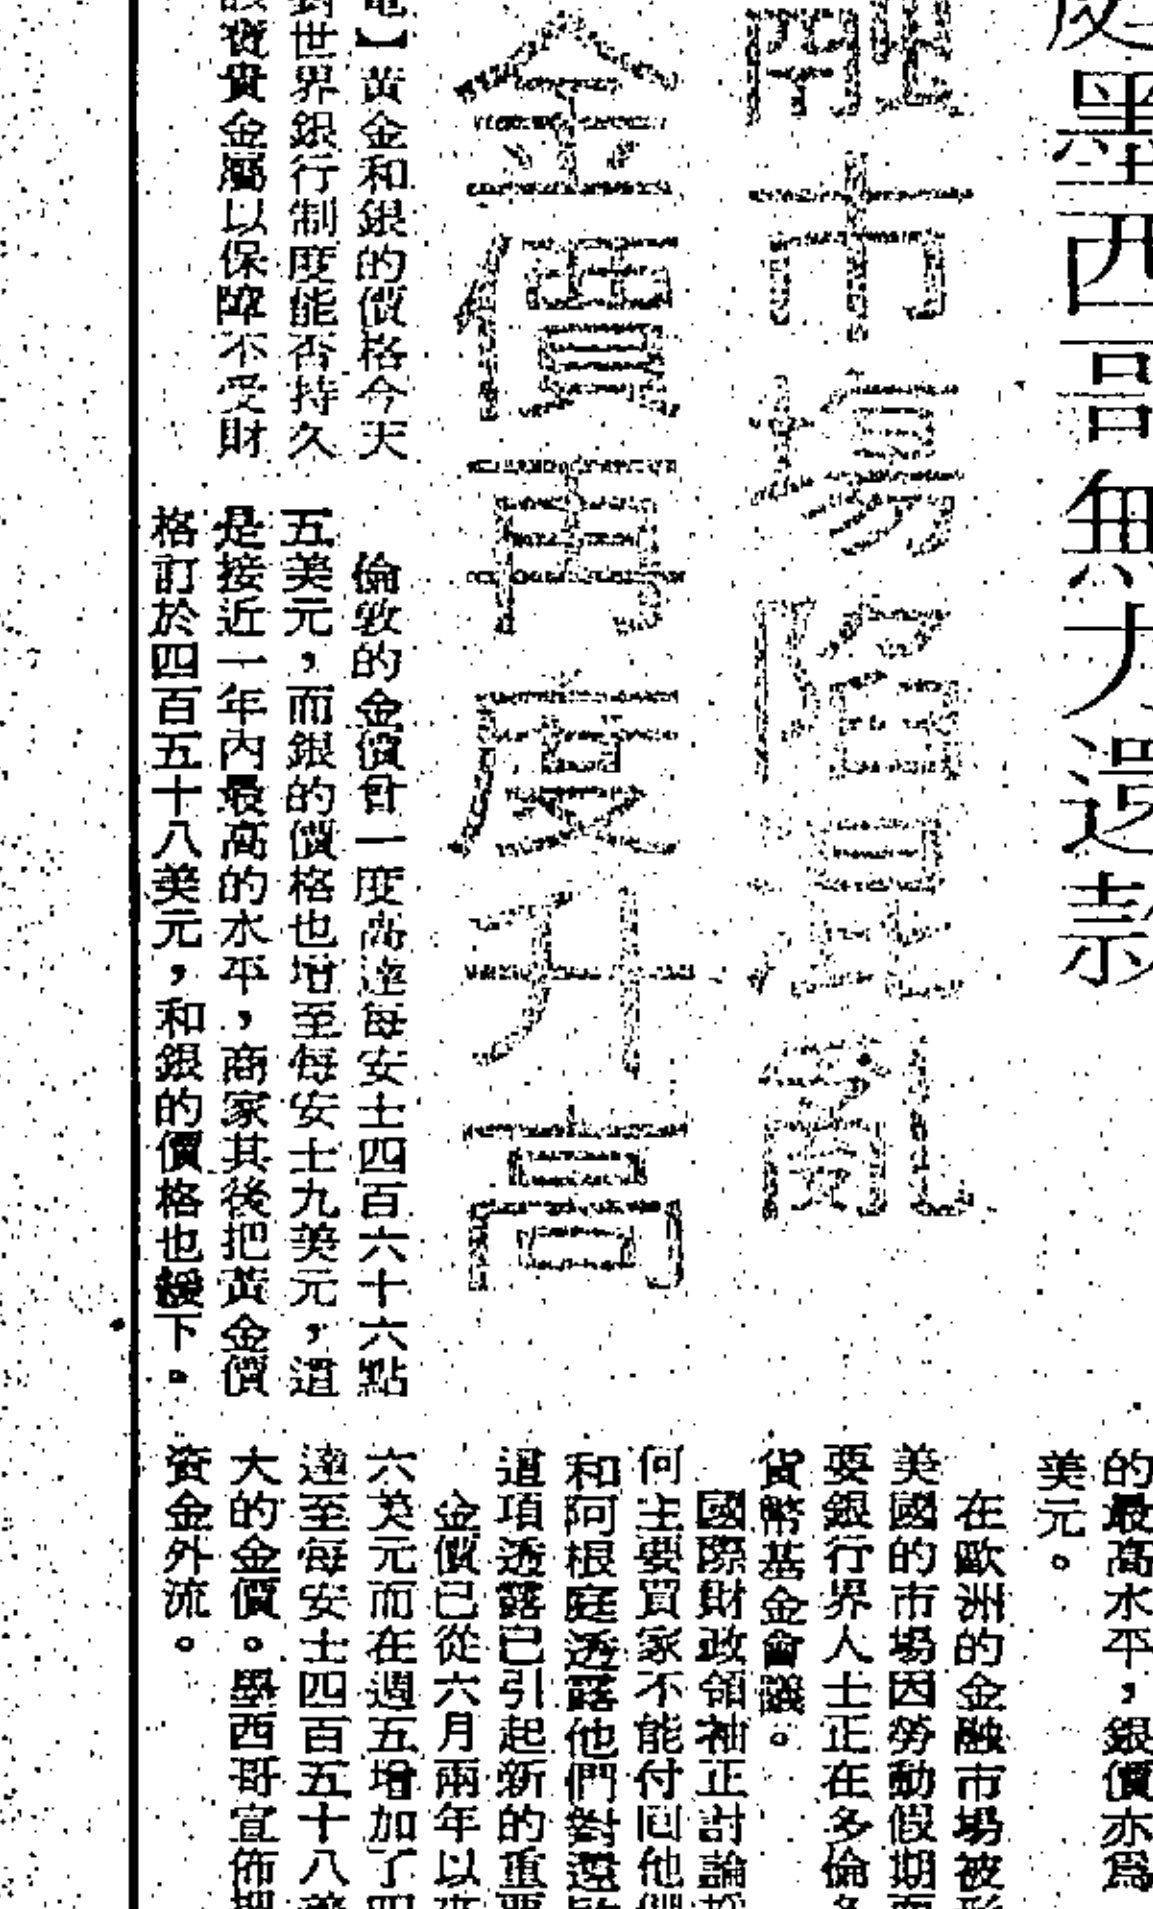 庭墨西哥無力還款
融市場陷混亂
金價再度升高
電】黃金和銀的價格今天
對世界銀行制度能否持久
該寶貴金屬以保障不受財
倫敦的金價曾一度高達每安士四百六十六點
五美元，而銀的價格也增至每安士九美元，這
是接近一年內最高的水平，商家其後把黃金價
格訂於四百五十八美元，和銀的價格也緩下。
的最高水平，銀價亦為
美元。
在歐洲的金融市場被形
美國的市場因勞動假期而
要銀行界人士正在多倫多
貨幣基金會議。
國際財政領袖正討論於
何主要買家不能付回他們
和阿根庭透露他們對還款
這項透露已引起新的重要
金價已從六月兩年以來
六美元而在週五增加了四
達至每安士四百五十八美
大的金價。墨西哥宣佈把
資金外流。